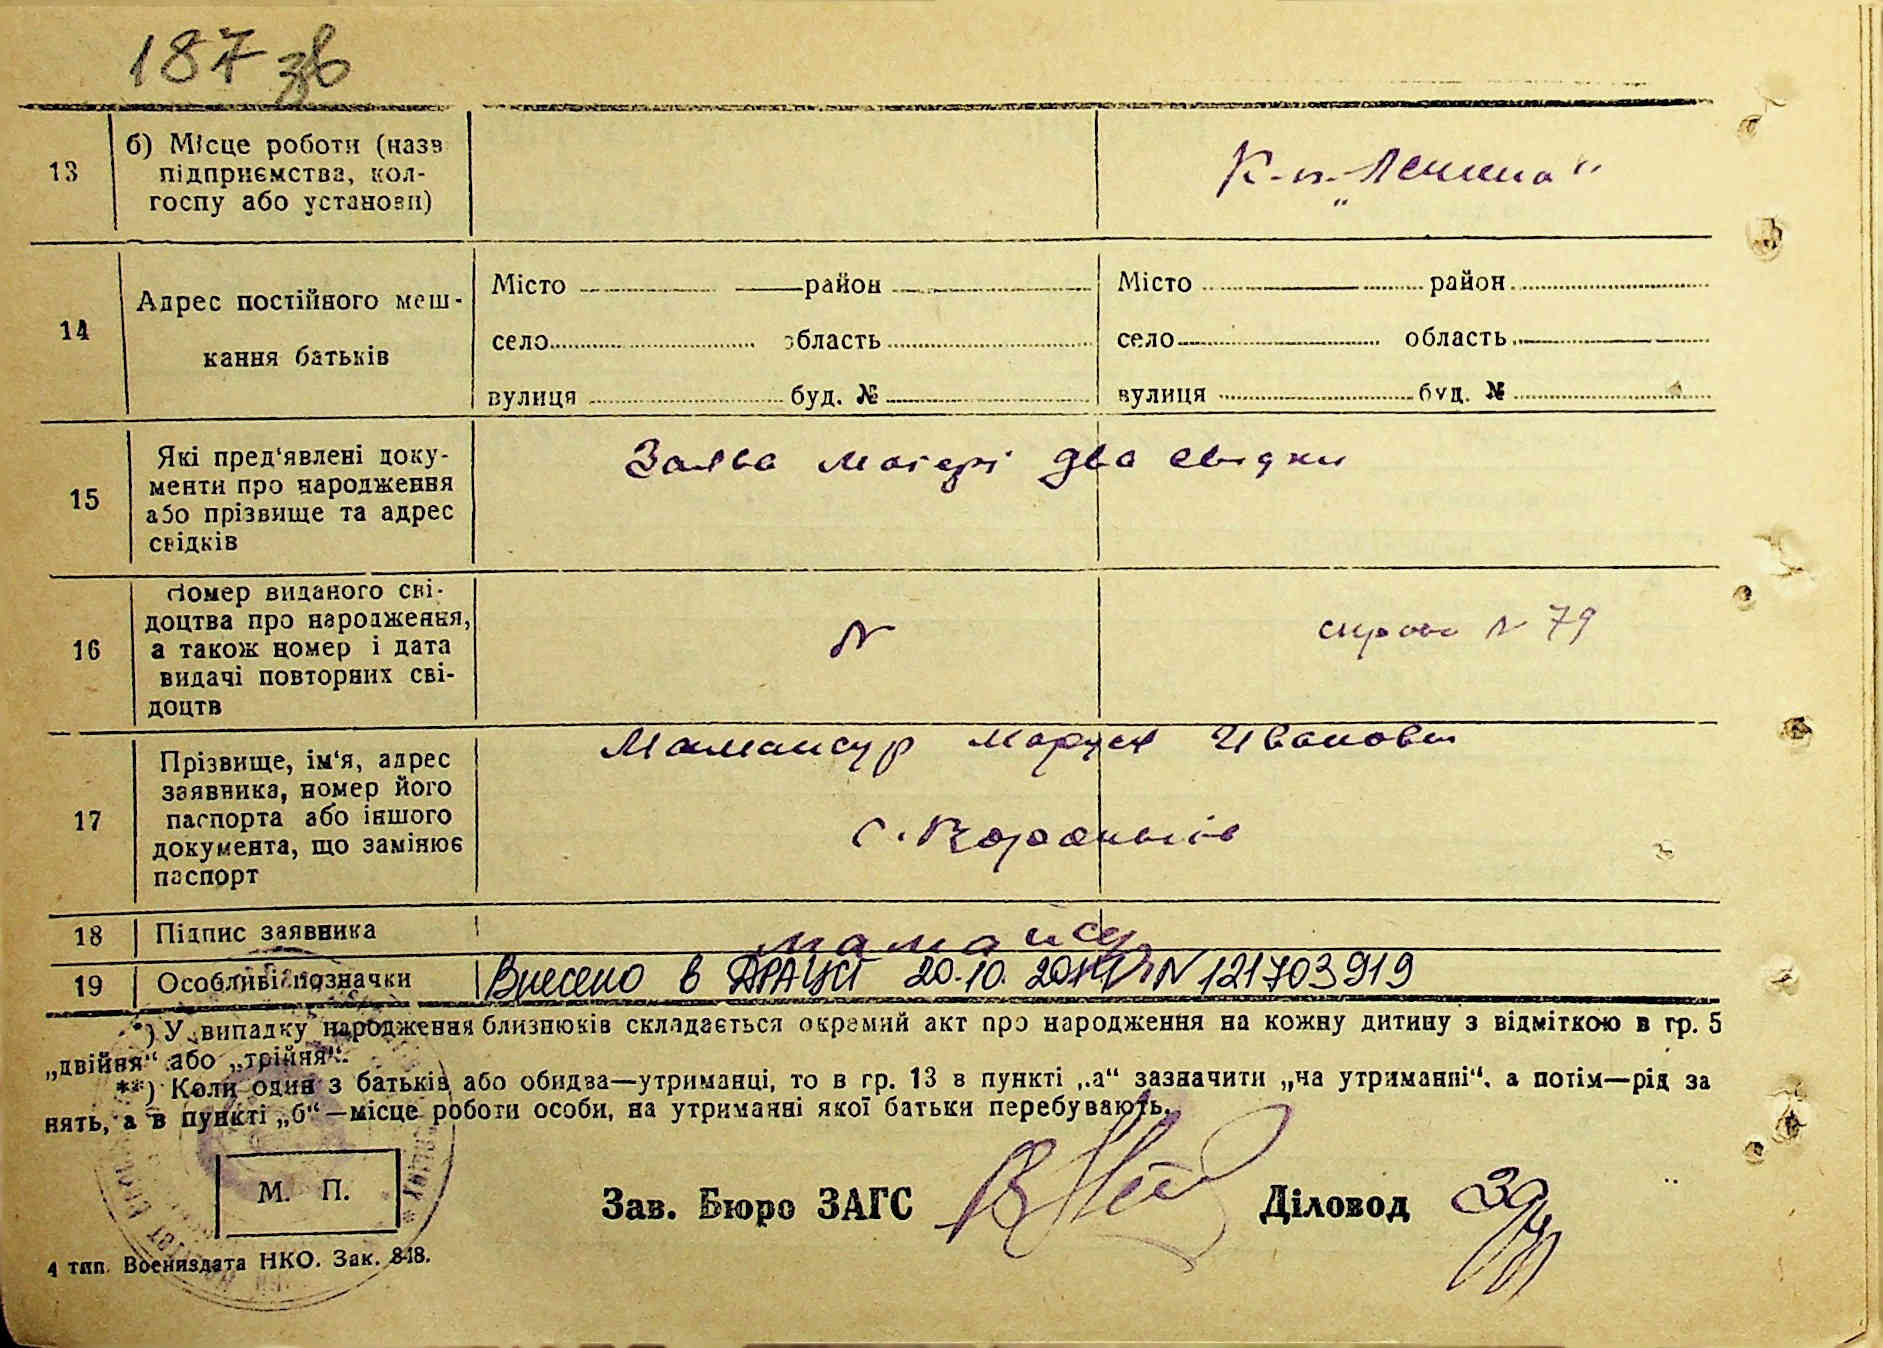 187 зв
13
б) Місце роботи (назв
підприємства, кол-
госпу або установи)
К-п. „Леніна“
14
Адрес постійного меш-
кання батьків
Місто район
село область
вулиця буд. №
Місто район
село область
вулиця буд. №
15
Які пред‘явлені доку-
менти про народження
або прізвище та адрес
свідків
Заява матері два свідки
16
Номер виданого сві-
доцтва про народження,
а також номер і дата
видачі повторних сві-
доцтв
N
справа N 79
17
Прізвище, ім‘я, адрес
заявника, номер його
паспорта або іншого
документа, що замінює
паспорт
Мамайсур Маруся Ивановн
с. Вороньків
18
Підпис заявника
Мамайсу
19
Особливі позначки
Внесено в ДРАЦСГ 20.10. N 121703919
*) У випадку народження близнюків складається окремий акт про народження на кожну дитину з відміткою в гр. 5
„двійня“ або „трійня“.
**) Коли один з батьків або обидва—утриманці, то в гр. 13 в пункті „а“ зазначити „на утриманні“, а потім—рід за
нять, а в пункті „б“—місце роботи особи, на утриманні якої батьки перебувають.
М. П.
Зав. Бюро ЗАГС
Діловод
4 тип. Воениздата НКО. Зак. 848.